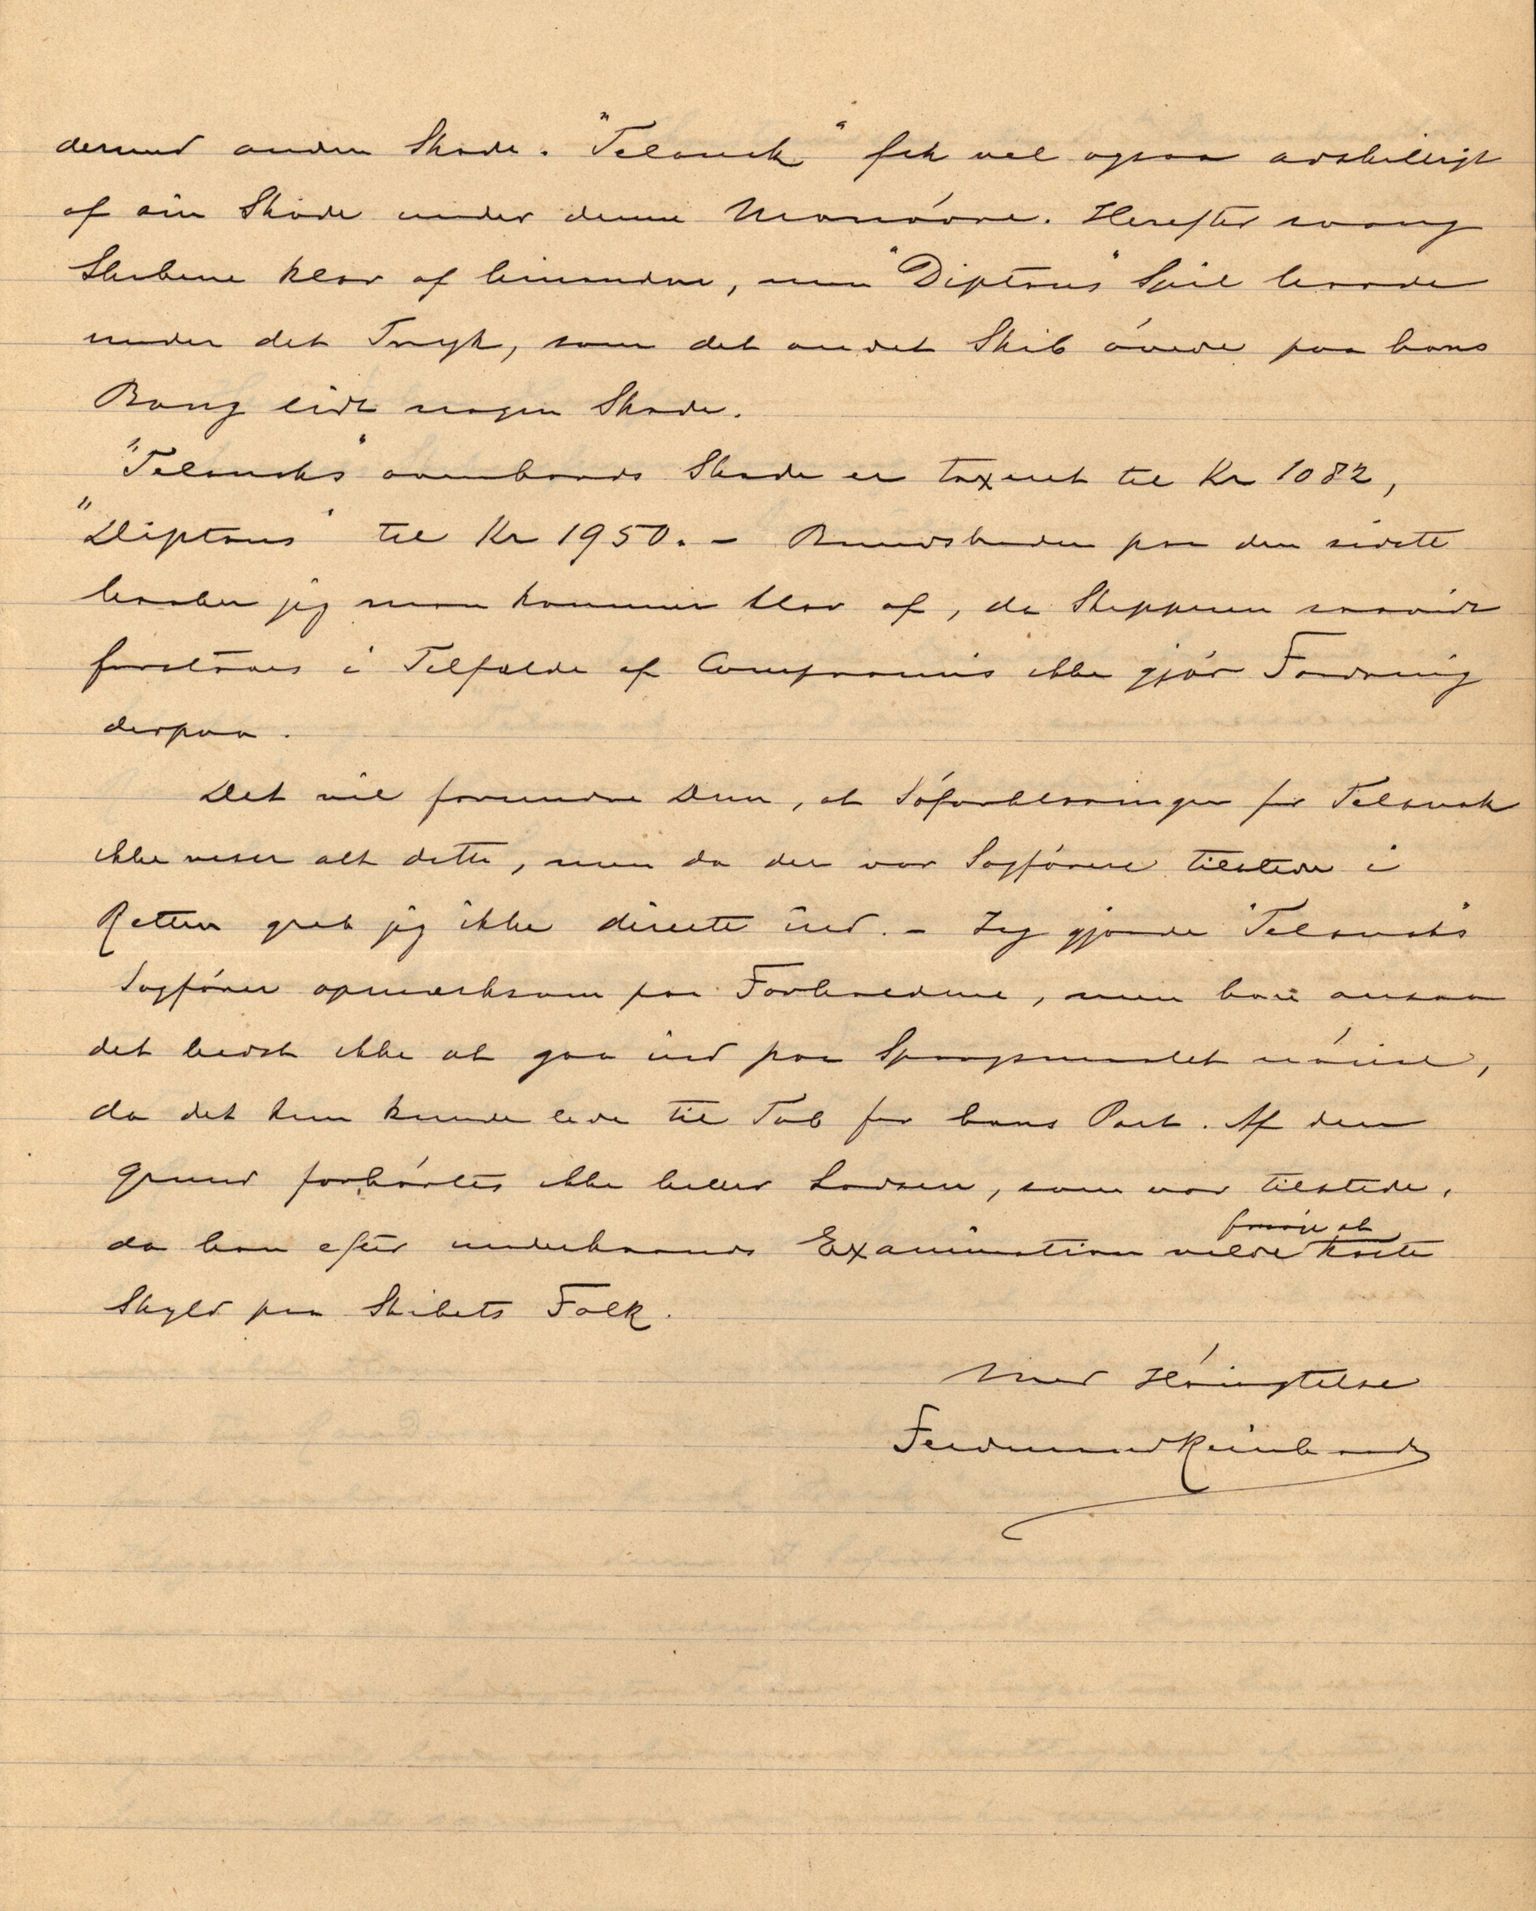 derved anden Skade. "Telanak" fik vel ogsaa adskilligt
af sin Skade under denne Manøvre. Herefter svang
Skibene klar af hinanden, men "Diptons" Spil havde
under det Tryk, som det andet Skib øvede paa hans
Boug lidt nogen Skade.
"Telanaks" ovenbords Skade er taxeret til Kr 1082,
"Diptons" til Kr 1950. — Bundskaden paa den sidste
haaber jeg man kommer klar af, da Skipperen saavidt
forstaaes i Tilfælde af Compromis ikke gjør Fordring
derpaa.
Det vil forundre Dem, at Søforklaringen for Telanak
ikke viser alt dette, men da der var Sagførere tilstede i
Retten greb jeg ikke directe ind. — Jeg gjorde "Telanaks"
Sagfører opmærksom paa Forholdene, men han ansaa
det bedst ikke at gaa ind paa Spørgsmaalet nøiere,
da det kun kunde lede til Tab for hans Part. Af den
Grund forhørtes ikke heller Lodsen, som var tilstede,
da han efter underhaands Examination vilde forsøge at kaste
Skyld paa Skibets Folk.
Med Høiagtelse
Ferdinand Reinhardt